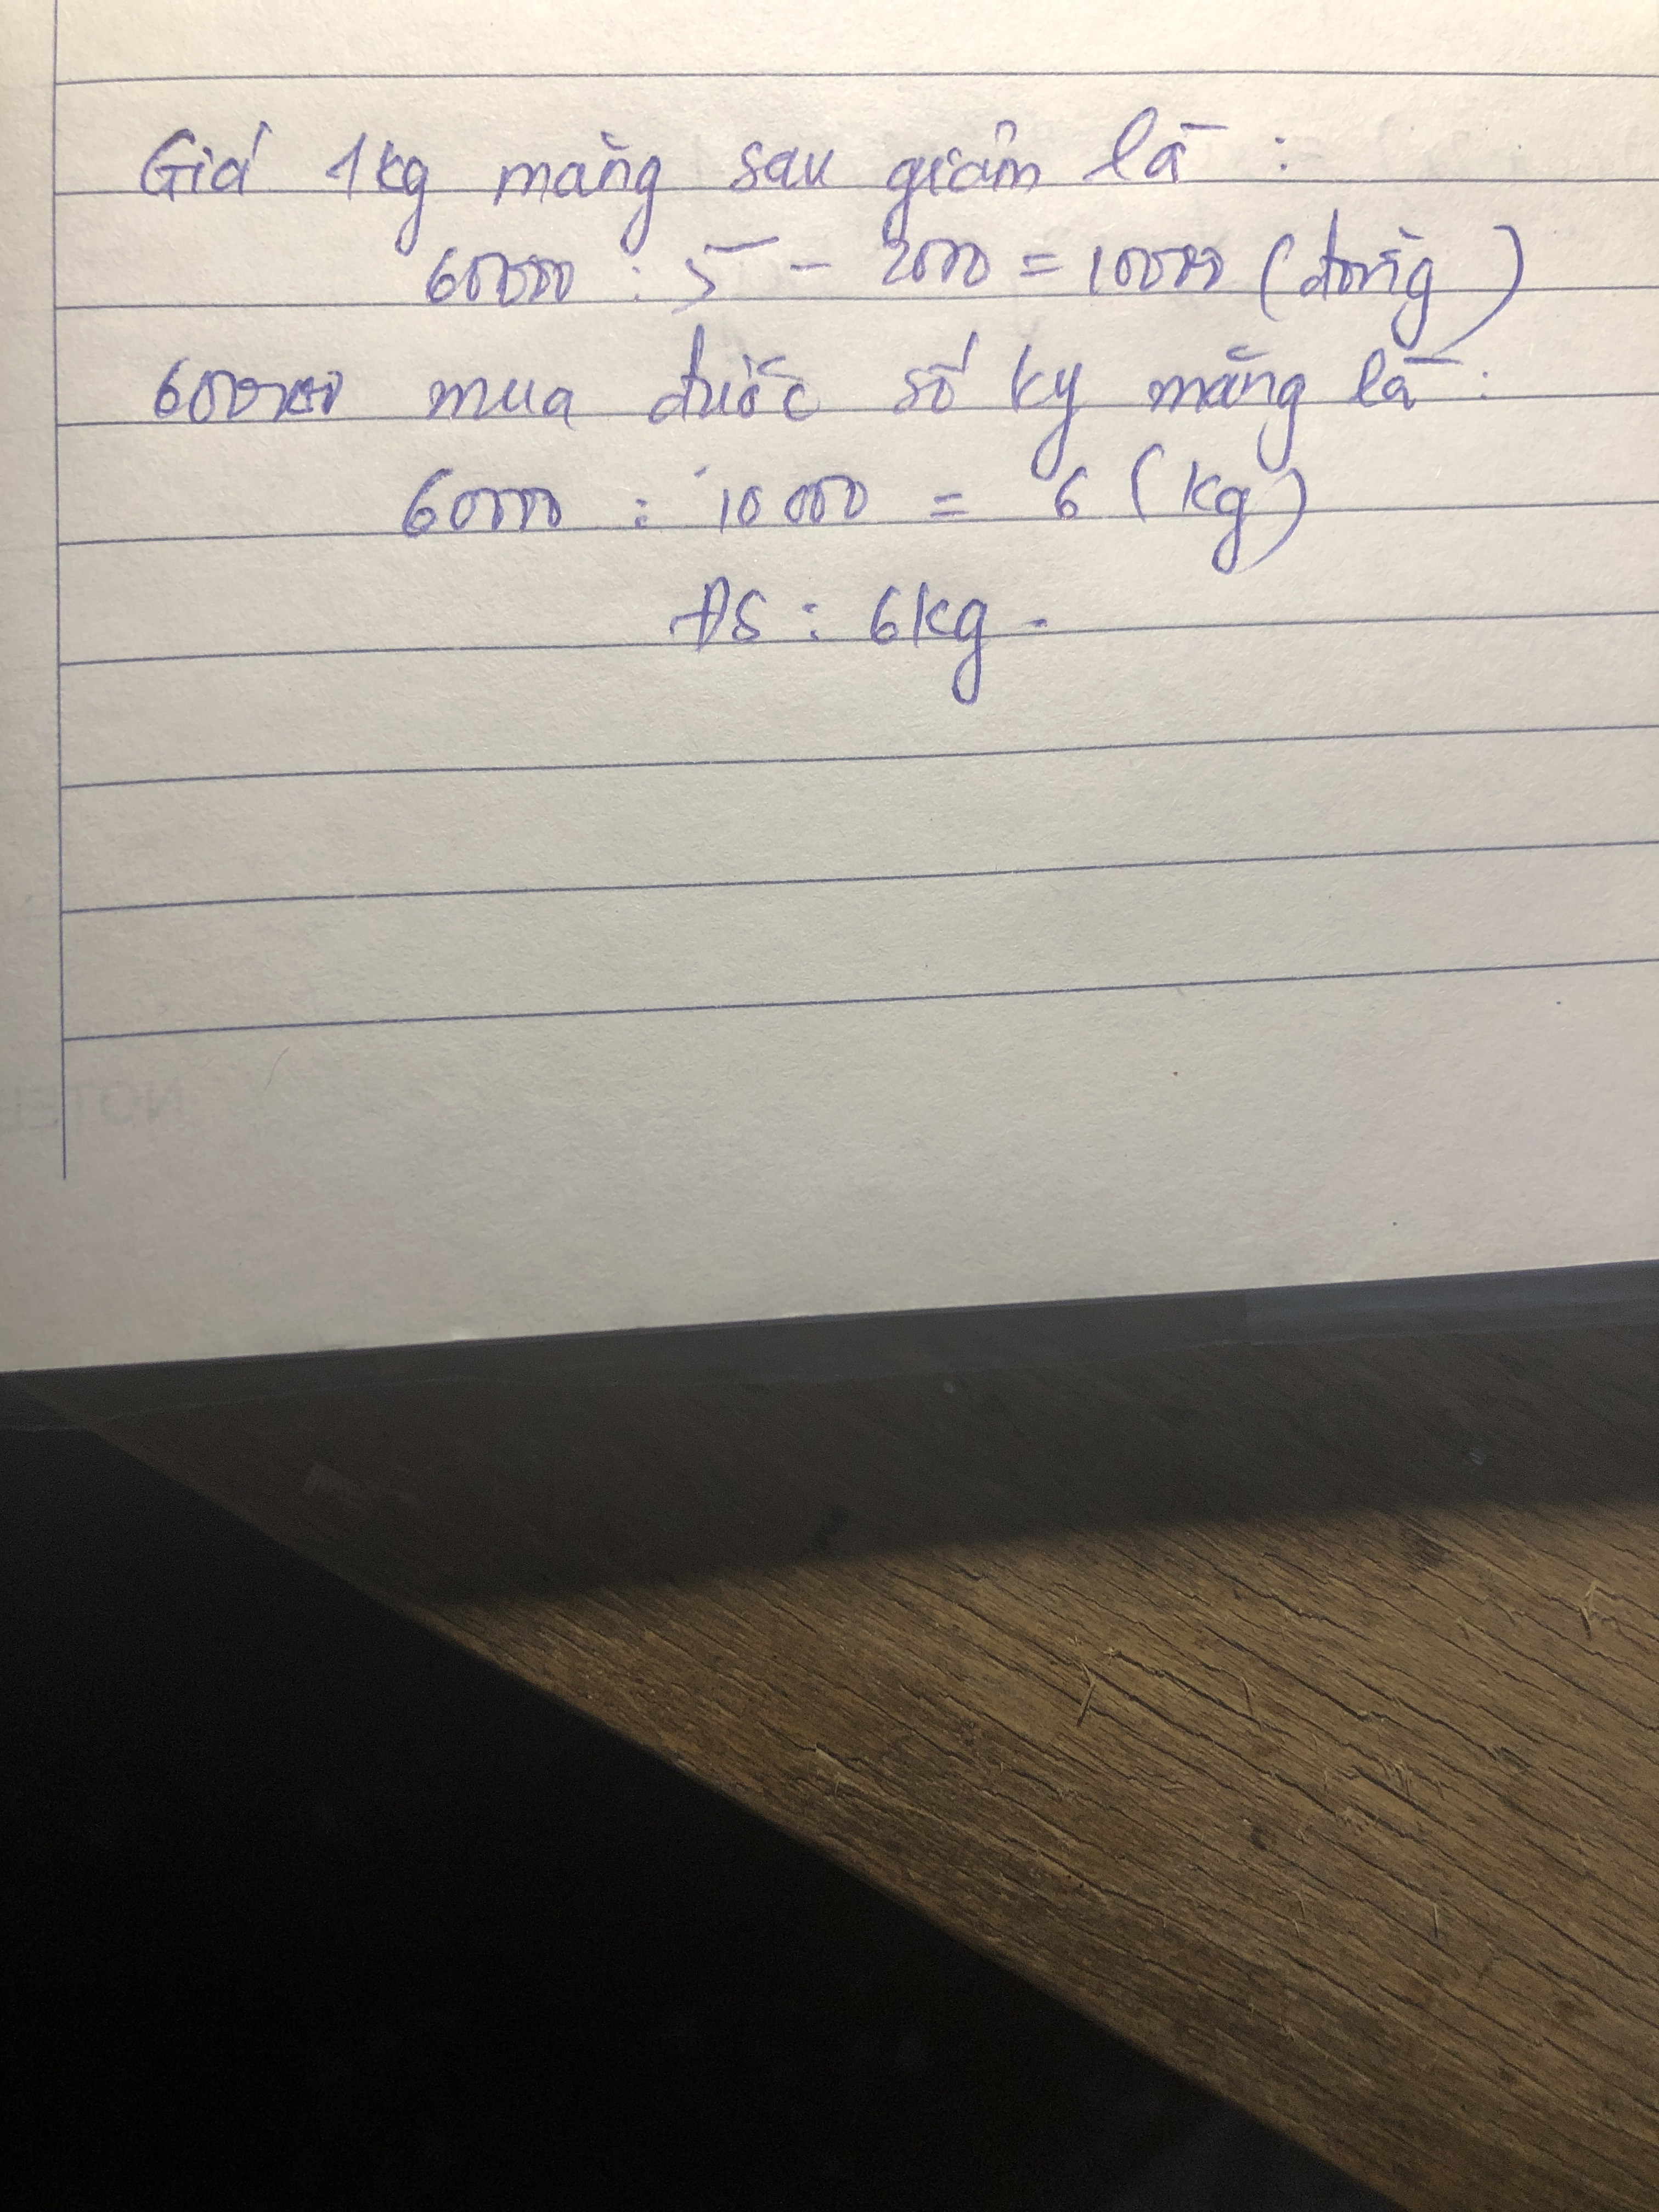 Giá 1kg măng sau giảm là :
60000 : 5 - 2000 = 10000 (đồng)
60000 mua được số ký măng là :
60000 : 10 000 = 6 (kg)
ĐS : 6kg.